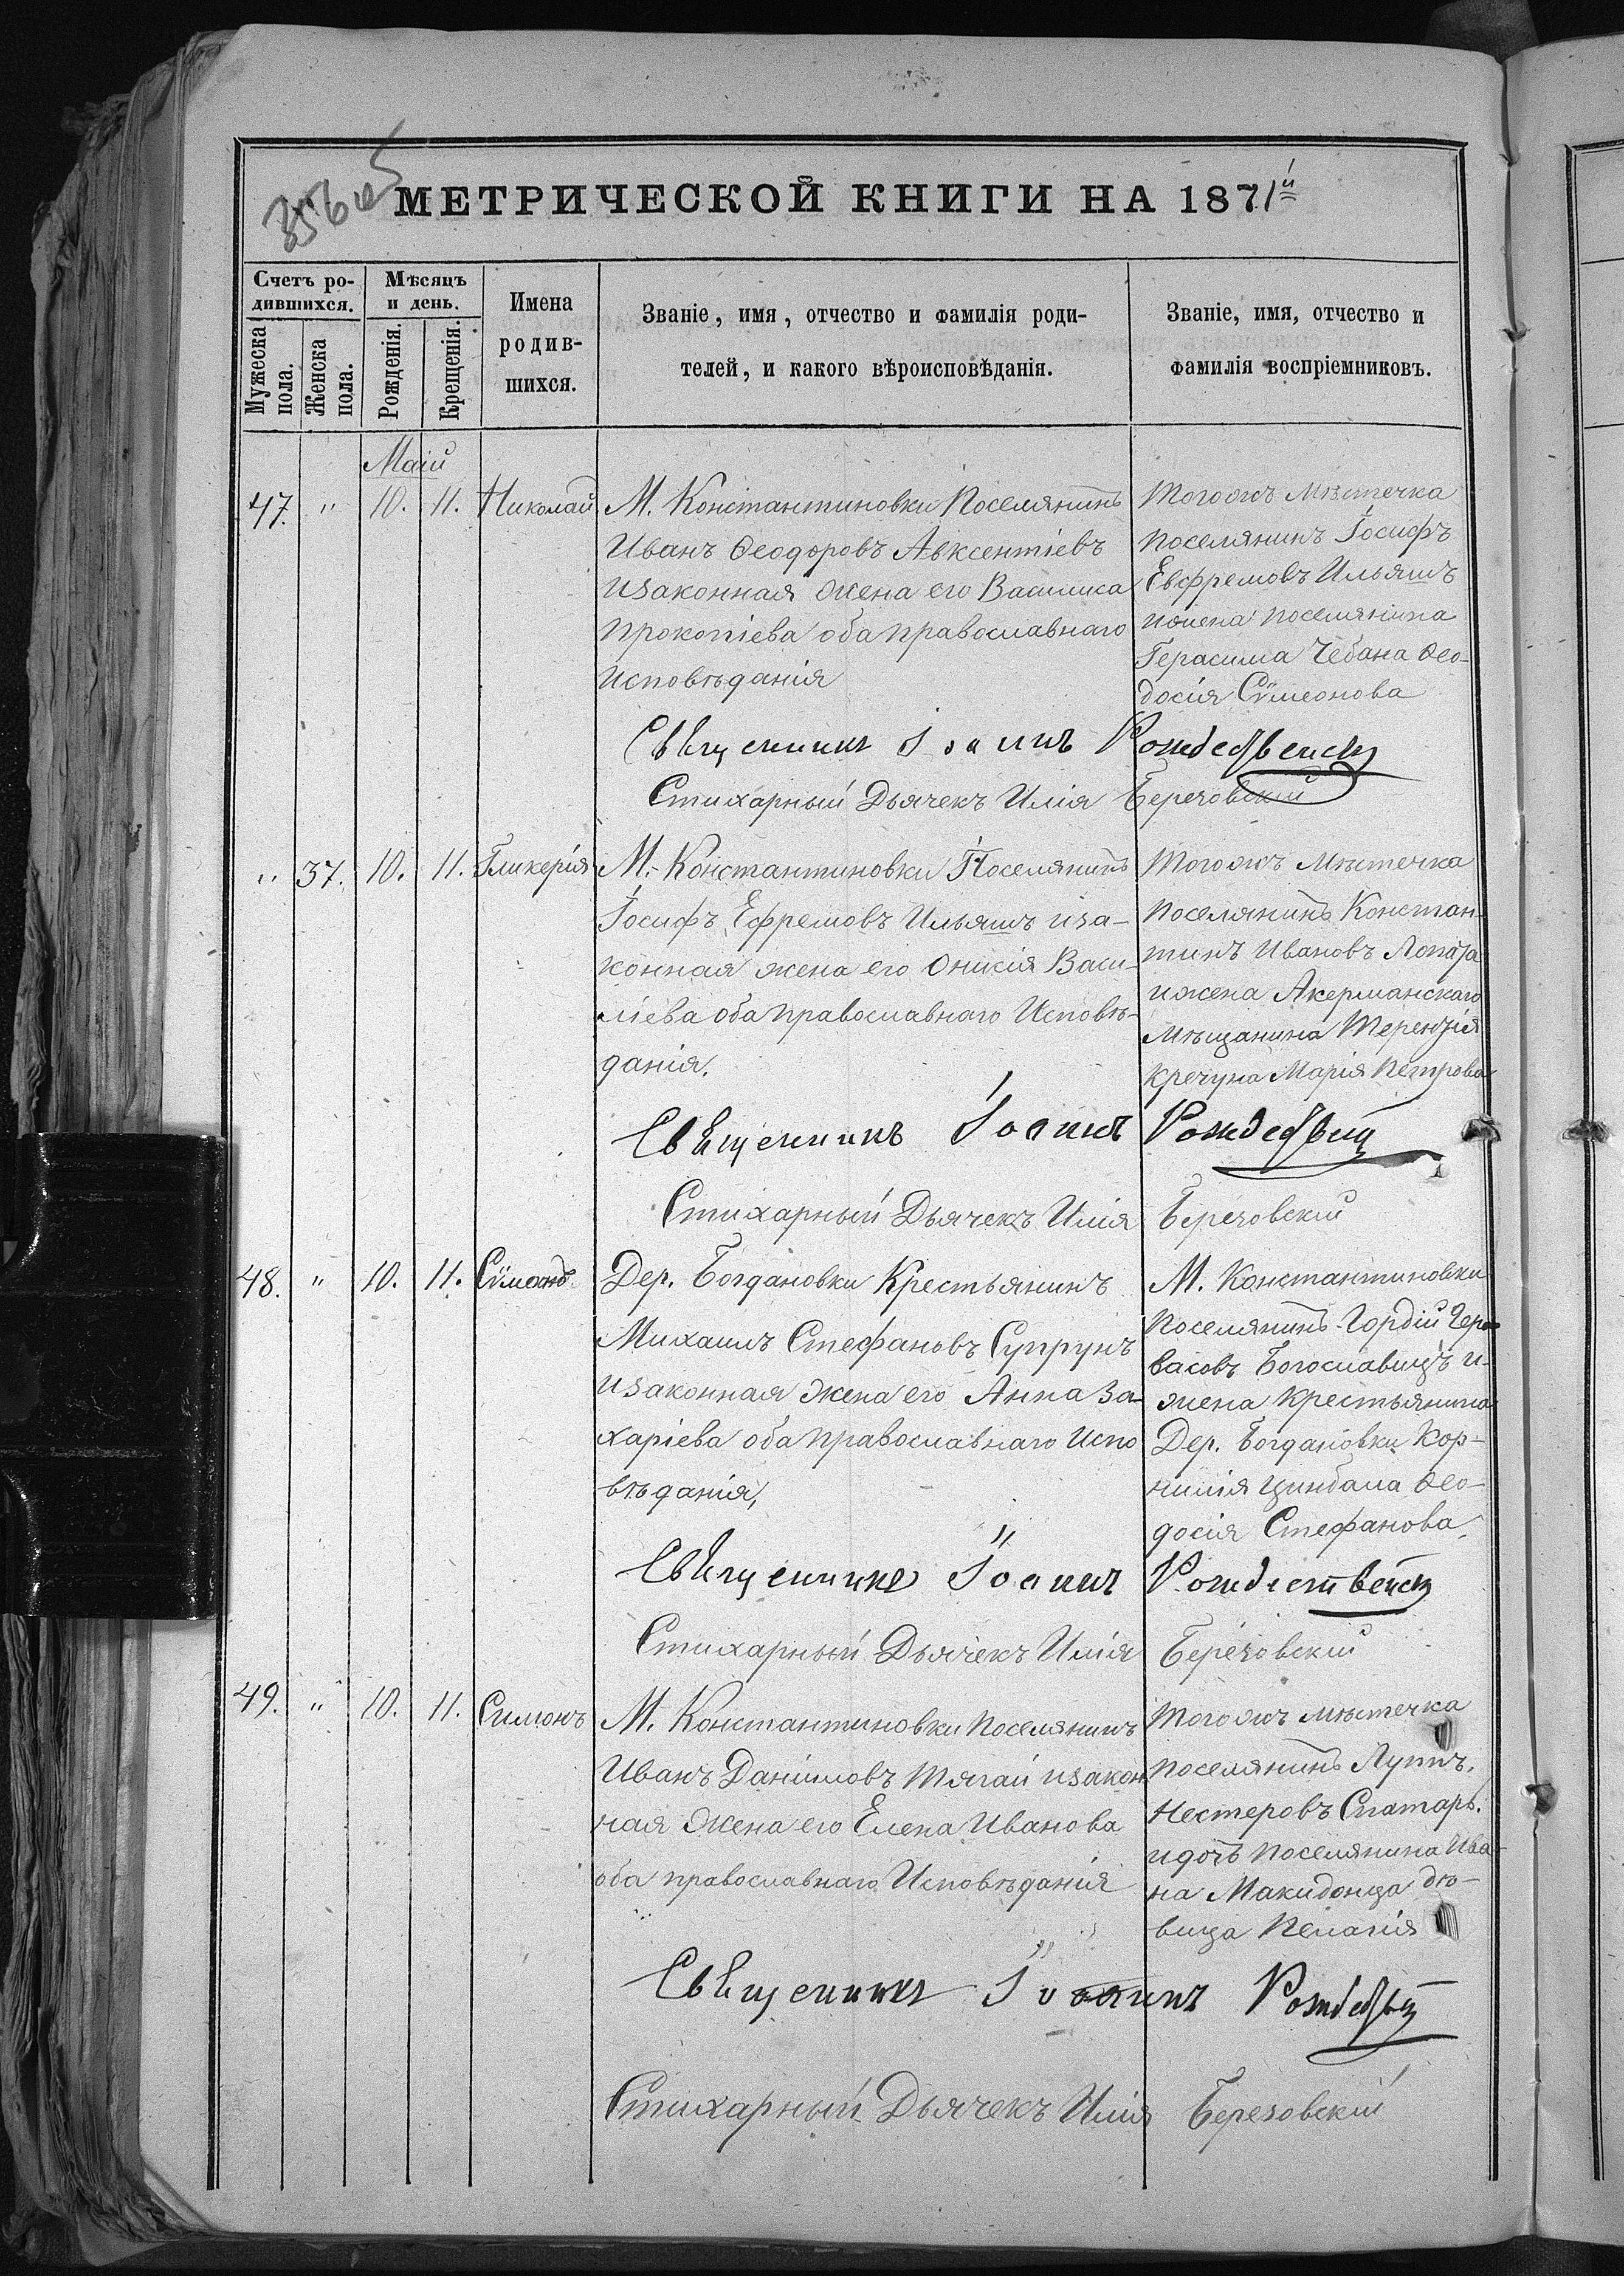 МЕТРИЧЕСКОЙ КНИГИ НА 1871й
Счетъ ро-
дившихся.
Мужеска пола.
Женска пола.
Мѣсяцъ
и день.
Рожденія.
Крещенія.
Имена
родив-
шихся.
Званіе, имя, отчество и фамилія роди-
телей, и какого вѣроисповѣданія.
Званіе, имя, отчество и
фамилія воспріемниковъ.
Маій
47. " 10. 11. Николай
М. Константиновки Поселянинъ
Иванъ Ѳеодоровъ Авксентіевъ
изаконная жена его Василиса
Прокопіева оба православнаго
Исповѣданія
Тогожъ мѣстечка
поселянинъ Іосифъ
Евфремовъ Ильяшъ
ижена поселянина
Герасима Чебана Ѳео-
досія Сѵмеонова
Священникъ Іоаннъ Рождественск
Стихарный Дьячекъ Илія Березовский
" 37. 10. 11. Гликерія
М. Константиновки Поселянинъ
Іосифъ Ефремовъ Ильяшъ иза-
конная жена его Оникія Васи-
ліева оба православнаго Исповѣ-
данія.
Тогожъ мѣстечка
поселянинъ Констан-
тинъ Ивановъ Лопаза
ижена Акерманскаго
мѣщанина Терентія
Кречуна Марія Петрова
Священникъ Іоаннъ
Стихарный Дьячекъ Илія Березовскій
48. " 10. 11. Сѵмеонъ
Дер. Богдановки Крестьянинъ
Михаилъ Стефановъ Супрунъ
изаконная жена его Анна За-
харіева оба православнаго Испо
вѣданія,
М. Константиновки
Поселянинъ Гордій Гер-
васовъ Богославецъ и-
жена крестьянина
Дер. Богдановки Кор-
нилія Цинбала Ѳео-
досія Стефанова.
Священникъ Іоаннъ Рождественск
Стихарный Дьячекъ Илія Березовскій
49. " 10. 11. Симонъ
М. Константиновки поселянинъ
Иванъ Даніиловъ Тягай изакон
ная жена его Елена Иванова
оба православнаго Исповѣданія
Тогожъ мѣстечка
поселянинъ Луппъ.
Нестеровъ Спатарь.
идочь поселянина Ива-
на Македонца дѣ-
вица Пелагія
Священникъ Іоаннъ
Стихарный Дьячекъ Илія Березовскій